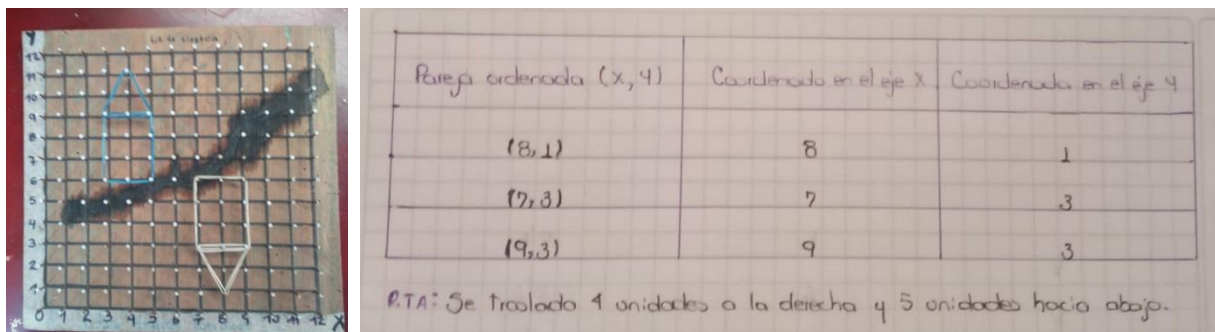 Y
12
11
10
9
8
7
6
5
4
3
2
1
0 1 2 3 4 5 6 7 8 9 10 11 12 X
Pareja ordenada (X,Y) Coordenada en el eje X Coordenada en el eje Y
(8,1) 8 1
(7,3) 7 3
(9,3) 9 3
P.TA: Se traslado 4 unidades a la derecha y 5 unidades hacia abajo.